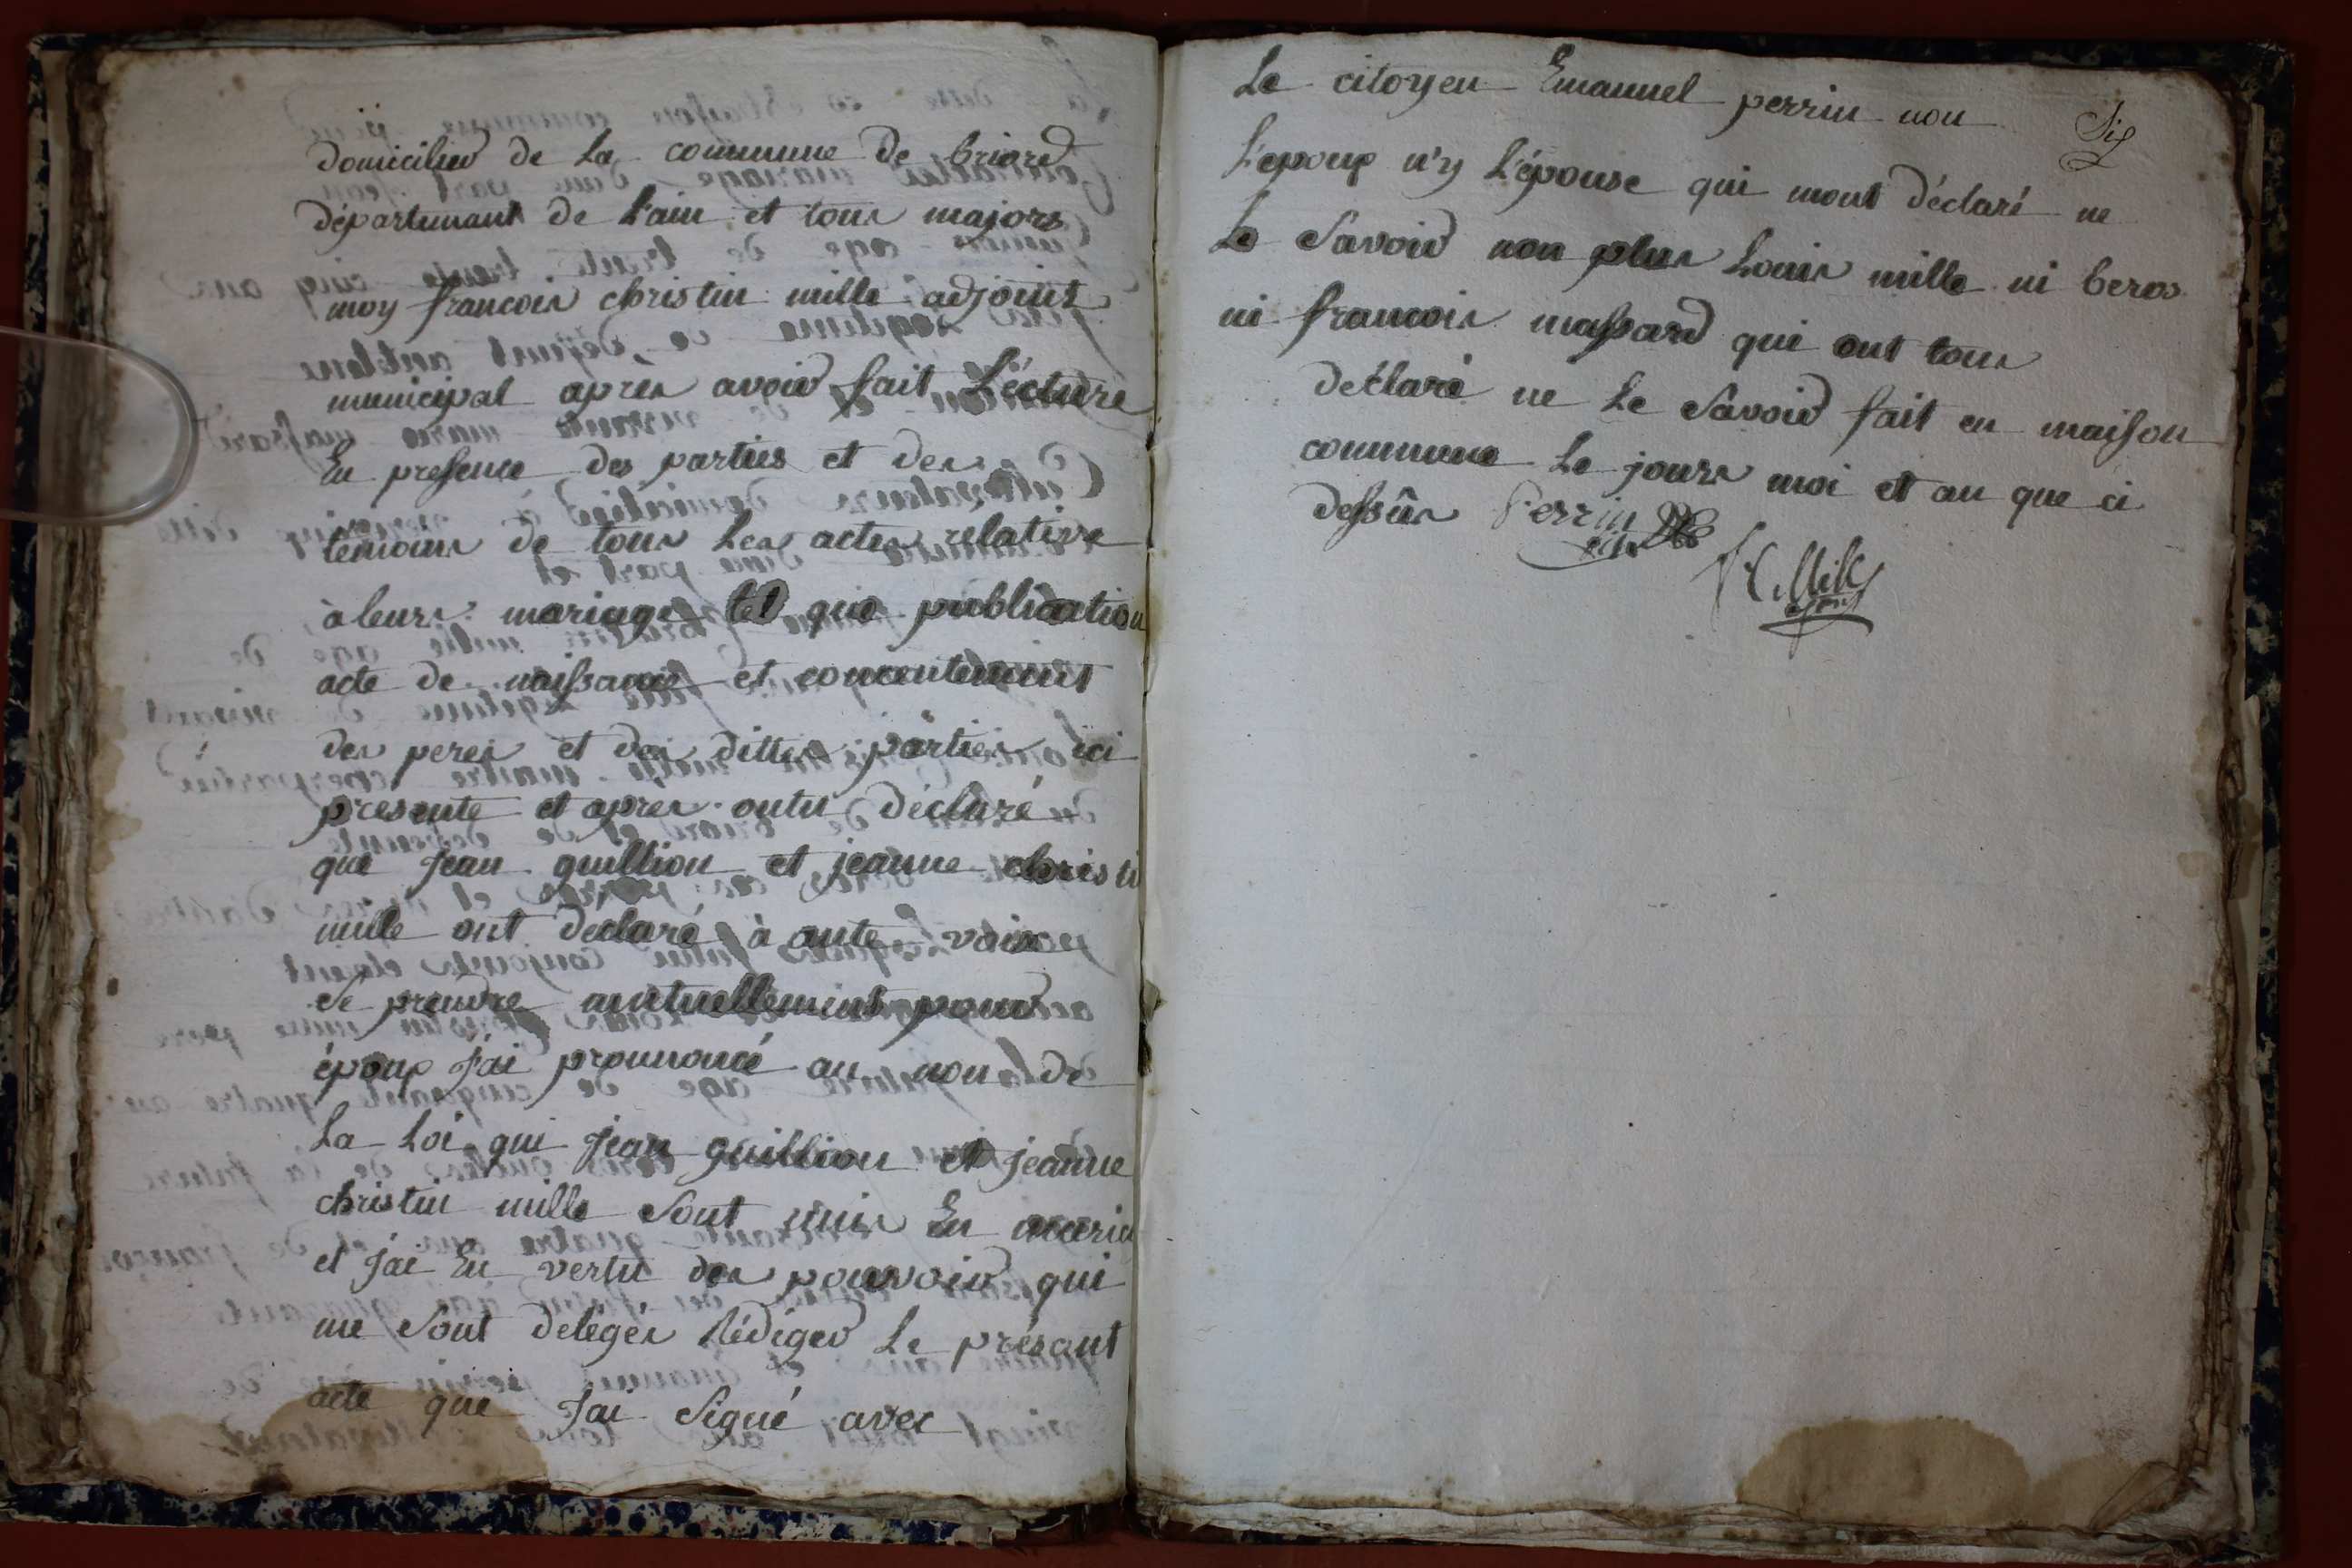 domicilied de La commune de briord
département de Lain et tous majors
moy francois christin mille adjoint
municipal apres avoir fait L'écture
En presence des parties et des
temoins de tous Les actes relative
à leurs mariage tel que publication
acte de naissance et concentement
des peres et des dittes parties ici
presente et apres outu déclaré
que Jean guillion et jeanne christi
mille ont déclaré à aute voix
Se prendre mutuellement pour
époux J'ai prounoncé au nom de
La Loi qui Jean guillion et Jeanne
christin mille Sont unis En maria
et J'ai En vertu des pouvoir qui
me Sont delégés Rédiger Le présant
acte que J'ai Signé avec
Le citoyen Emanuel perrin non
Sig
L'epoux n'y L'épouse qui mont déclaré ne
Le Savoir non plus Louis mille ni beros
ni francois massard qui ont tous
déclaré ne Le Savoir fait en maison
commune Le jours moi et an que ci
dessûs Perrin
F C Mille